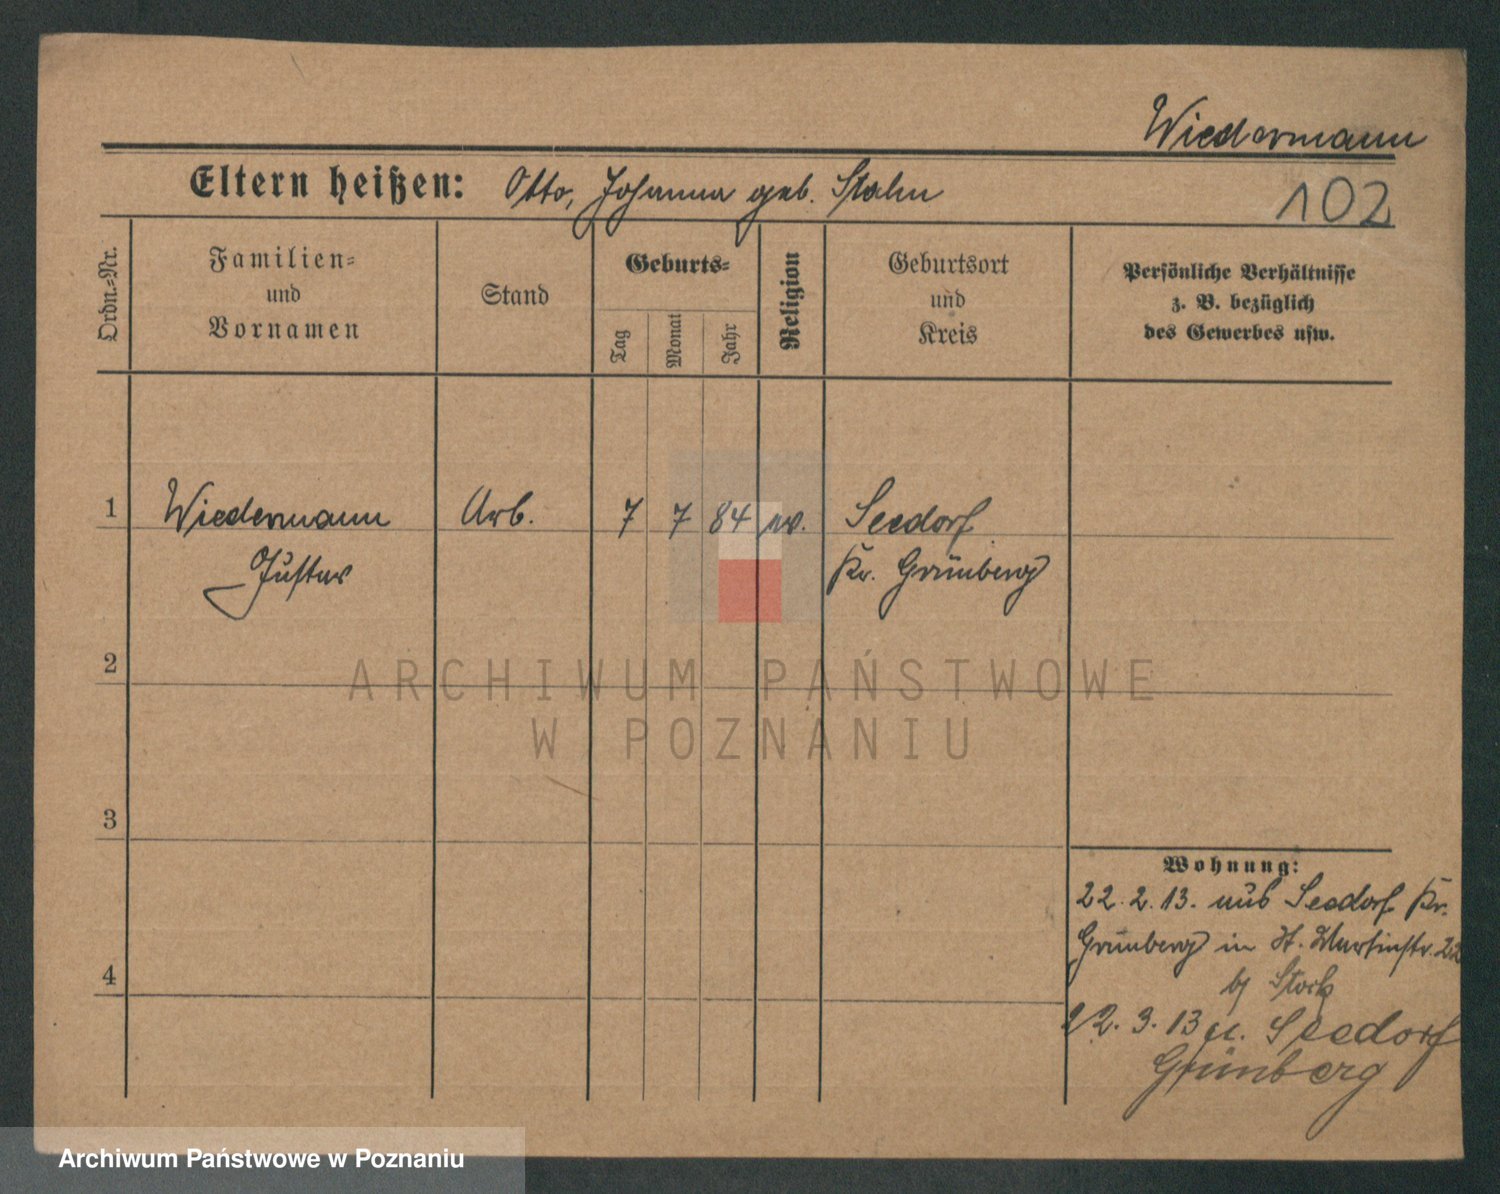 Wiedermann
Eltern heißen: Otto, Johanna geb. Stahn
102
Ordn.-Nr.
Familien-
und
Vornamen
Stand
Geburts-
Tag
Monat
Jahr
Religion
Geburtsort
und
Kreis
Persönliche Verhältnisse
z. B. bezüglich
des Gewerbes usw.
1 Wiedermann Arb. 7 7 84 ev. Seedorf
Gustav Kr. Grünberg
2
ARCHIWUM PAŃSTWOWE
W POZNANIU
3
Wohnung:
22.2.13. aus Seedorf Kr.
Grünberg in St. Martinstr. 22
4
b/ Stock
22.3.13 n. Seedorf
Grünberg
Archiwum Państwowe w Poznaniu